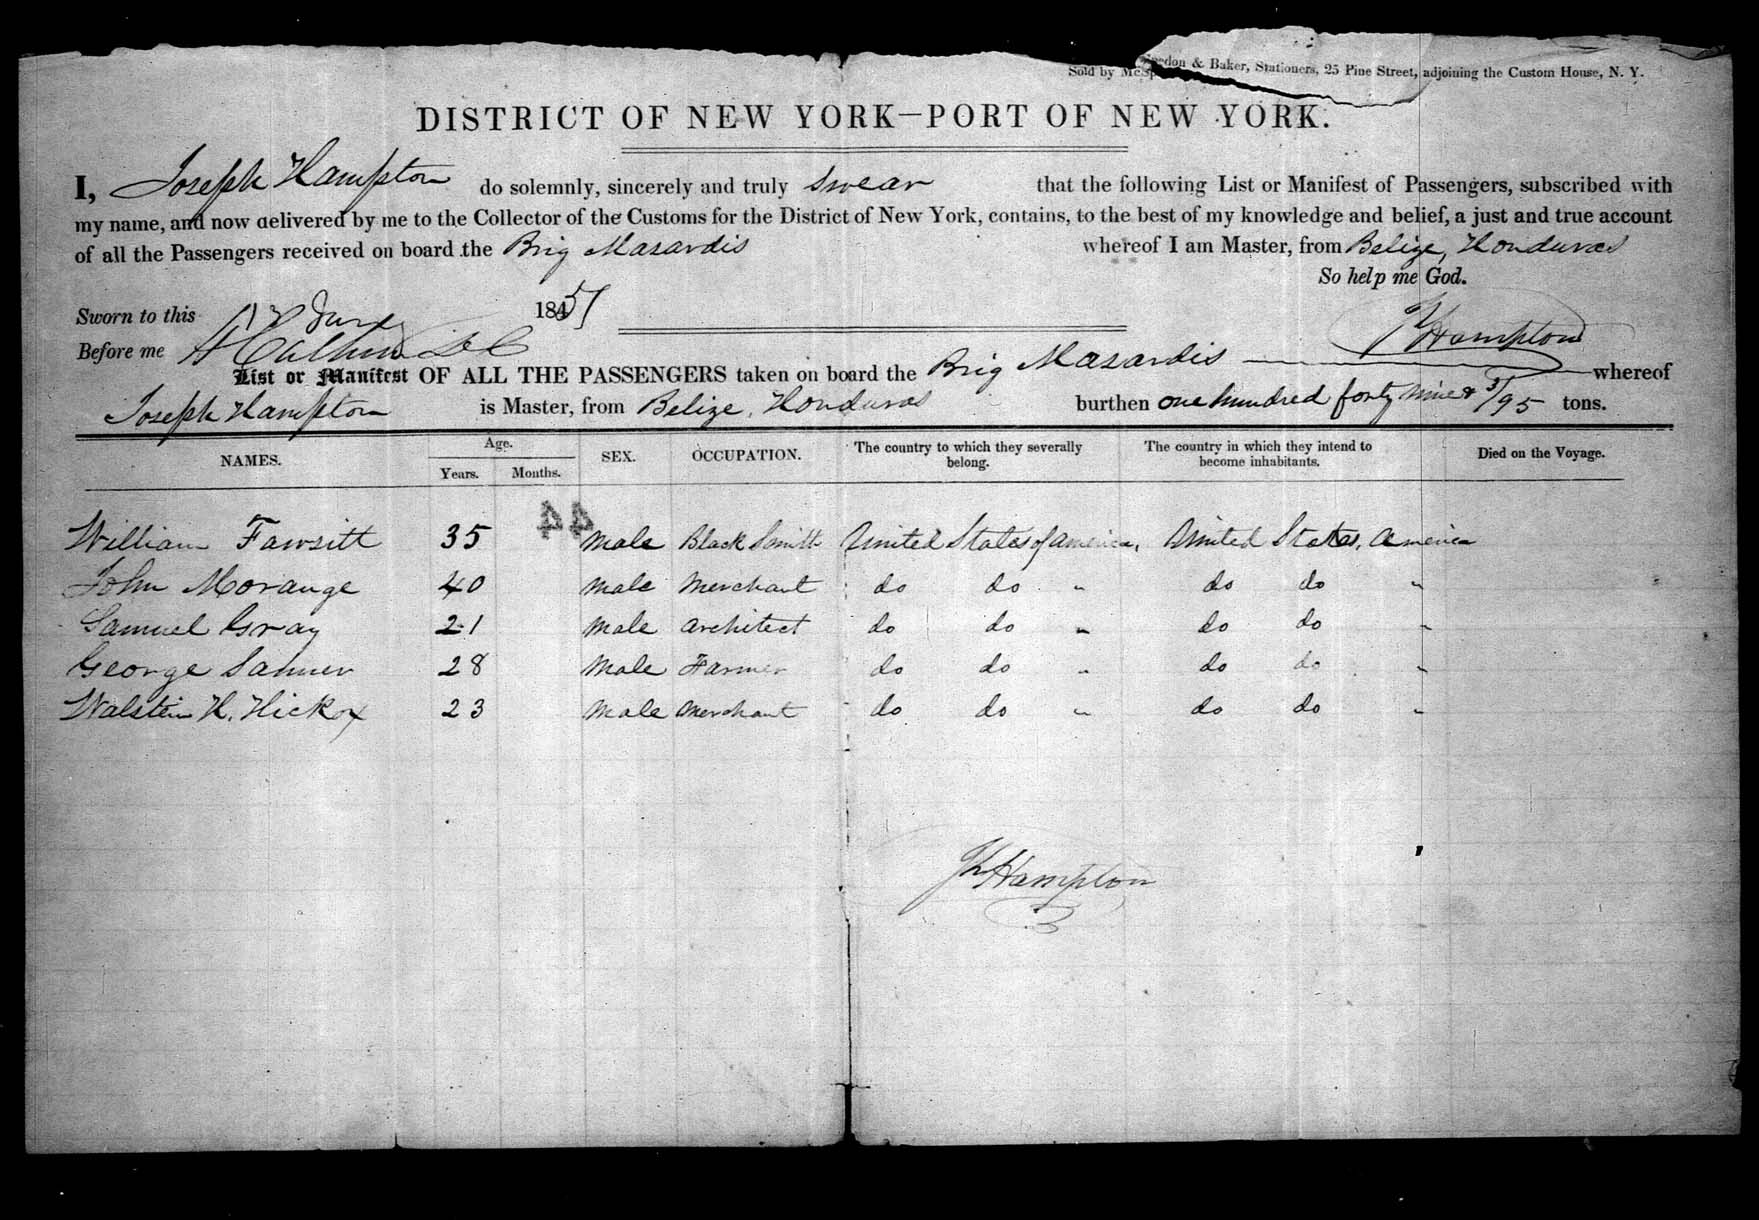 Sold by McSp don & Baker, Stationers, 25 Pine Street, adjoining the Custom House, N. Y.
DISTRICT OF NEW YORK—PORT OF NEW YORK.
I, Joseph Hampton do solemnly, sincerely and truly swear that the following List or Manifest of Passengers, subscribed with
my name, and now delivered by me to the Collector of the Customs for the District of New York, contains, to the best of my knowledge and belief, a just and true account
of all the Passengers received on board the Brig Masardis whereof I am Master, from Belize, Honduras
So help me God.
Sworn to this June 1851
Before me J Hampton
List or Manifest OF ALL THE PASSENGERS taken on board the Brig Masardis whereof
Joseph Hampton is Master, from Belize, Honduras burthen one hundred forty nine & 3/95 tons.
NAMES. Age. Years. Months. SEX. OCCUPATION. The country to which they severally belong. The country in which they intend to become inhabitants. Died on the Voyage.
44
William Fawsitt 35 Male Black Smith United States of America, United States, America
John Morange 40 Male Merchant do do " do do "
Samuel Gray 21 Male Architect do do " do do "
George Sanner 28 Male Farmer do do " do do "
Walstein H. Hickox 23 Male Merchant do do " do do "
J Hampton